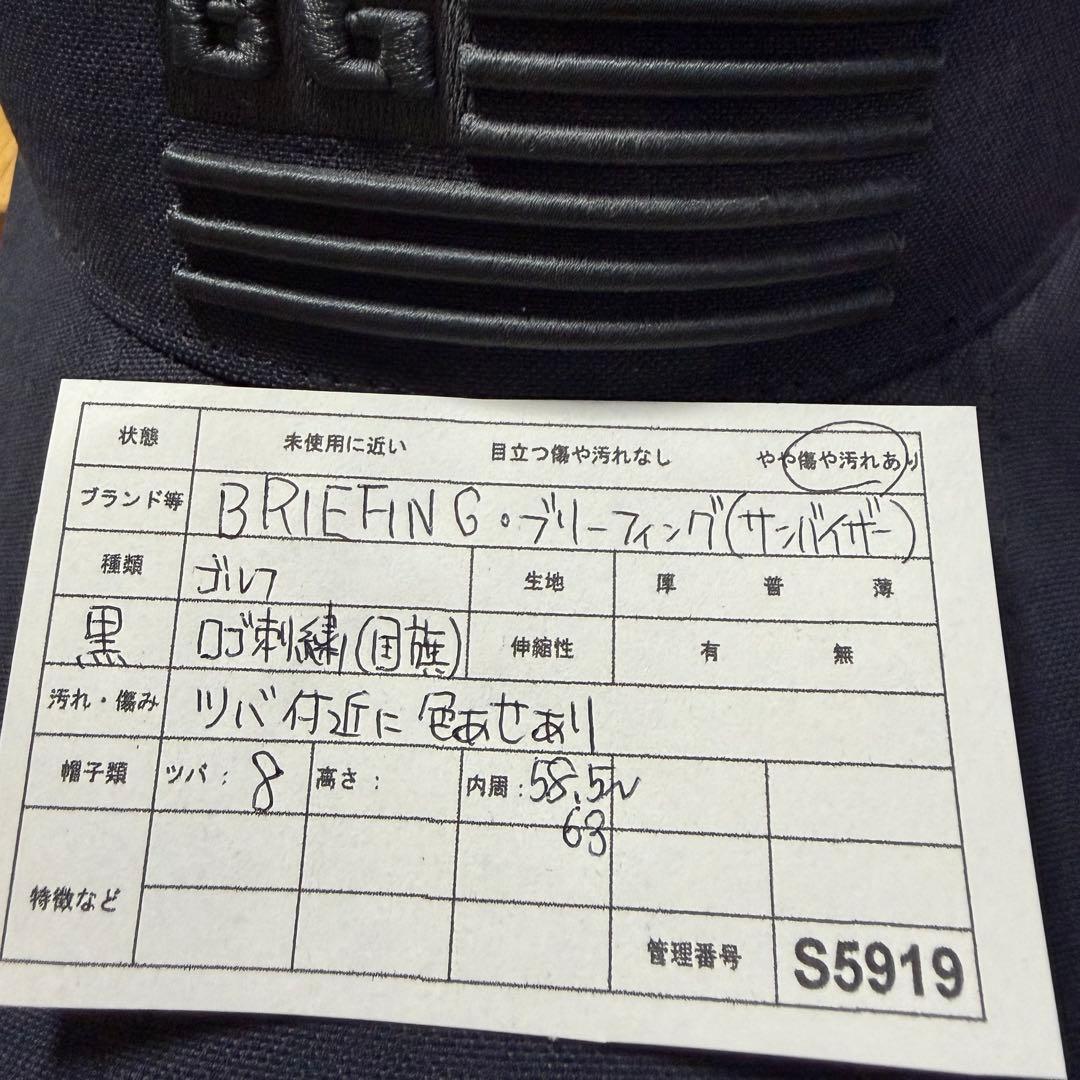 BG
状態 未使用に近い 目立つ傷や汚れなし やや傷や汚れあり
ブランド等 BRIEFING・ブリーフィング(サンバイザー)
種類 ゴルフ 生地 厚 普 薄
黒 ロゴ刺繍(国旗) 伸縮性 有 無
汚れ・傷み ツバ付近に色あせあり
帽子類 ツバ: 8 高さ: 内周: 58.5~
63
特徴など
管理番号 S5919